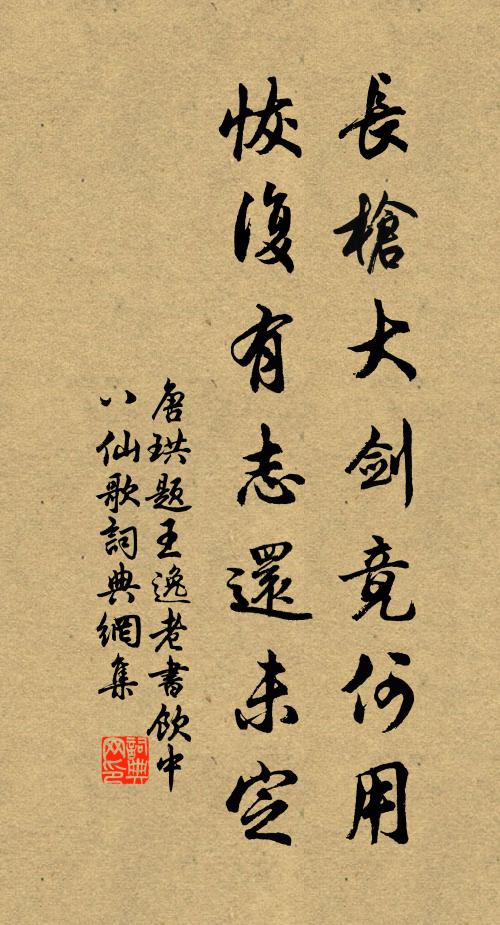 長槍大劍竟何用
恢復有志還未定
唐珙題王逸老書飲中
八仙歌詞典網集
詞典網印